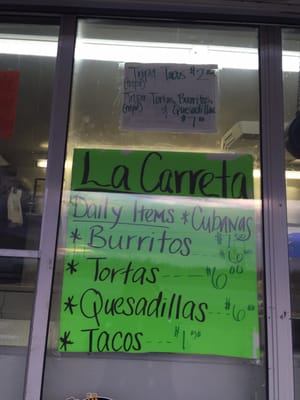 Tripa Tacos $2.00
(tripe)
Tripa Tortas, Burritos,
(tripe) & Quesadillas
$7.00
La Carreta
Daily Items *Cubanas
$7.50
*Burritos --- $6.00
*Tortas --- $6.00
*Quesadillas -- $6.00
*Tacos --- $1.50